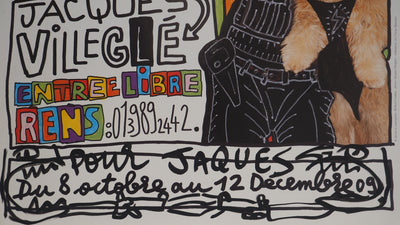 JACQUES
VILLEGLÉ
ENTREE LIBRE
RENS: 0139892442.
POUR JAQUES
Du 8 octobre au 12 Décembre 09